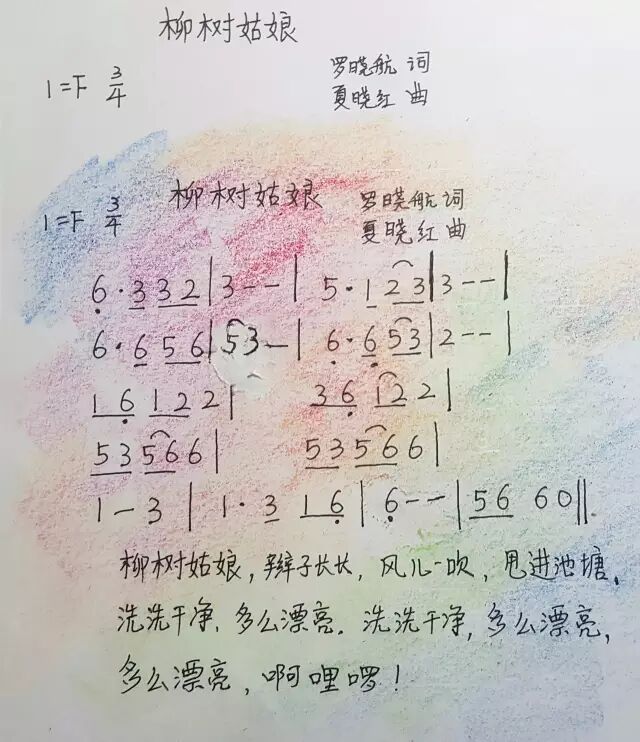 柳树姑娘
1=F 3/4 罗晓航 词
夏晓红 曲
柳树姑娘 罗晓航词
1=F 3/4 夏晓红曲
6·332|3--| 5·123|3--|
6·656|53-| 6·653|2--|
16122| 36122|
53566| 53566|
1-3|1·3 16|6--|56 60‖
柳树姑娘,辫子长长,风儿一吹,甩进池塘。
洗洗干净,多么漂亮。洗洗干净,多么漂亮,
多么漂亮,啊哩啰!